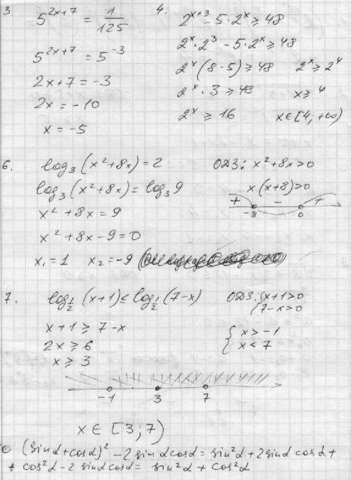 3 5^(2x+7) = 1/125
5^(2x+7) = 5^(-3)
2x+7 = -3
2x = -10
x = -5
4. 2^(x+3) - 5·2^x ≥ 48
2^x · 2^3 - 5·2^x ≥ 48
2^x (8-5) ≥ 48 2^x ≥ 2^4
2^x · 3 ≥ 48 x ≥ 4
2^x ≥ 16 x∈[4, +∞)
6. log₃(x²+8x) = 2 ОДЗ: x²+8x>0
log₃(x²+8x) = log₃9 x(x+8)>0
x² + 8x = 9 + - +
x² + 8x - 9 = 0 -8 0
x₁ = 1 x₂ = -9
7. log_½(x+1) ≤ log_½(7-x) ОДЗ: {x+1>0
7-x>0
x+1 ≥ 7-x {x > -1
2x ≥ 6 x < 7
x ≥ 3
-1 3 7
x∈[3; 7)
(sinα+cosα)² - 2sinαcosα = sin²α + 2sinαcosα +
+ cos²α - 2sinαcosα = sin²α + cos²α